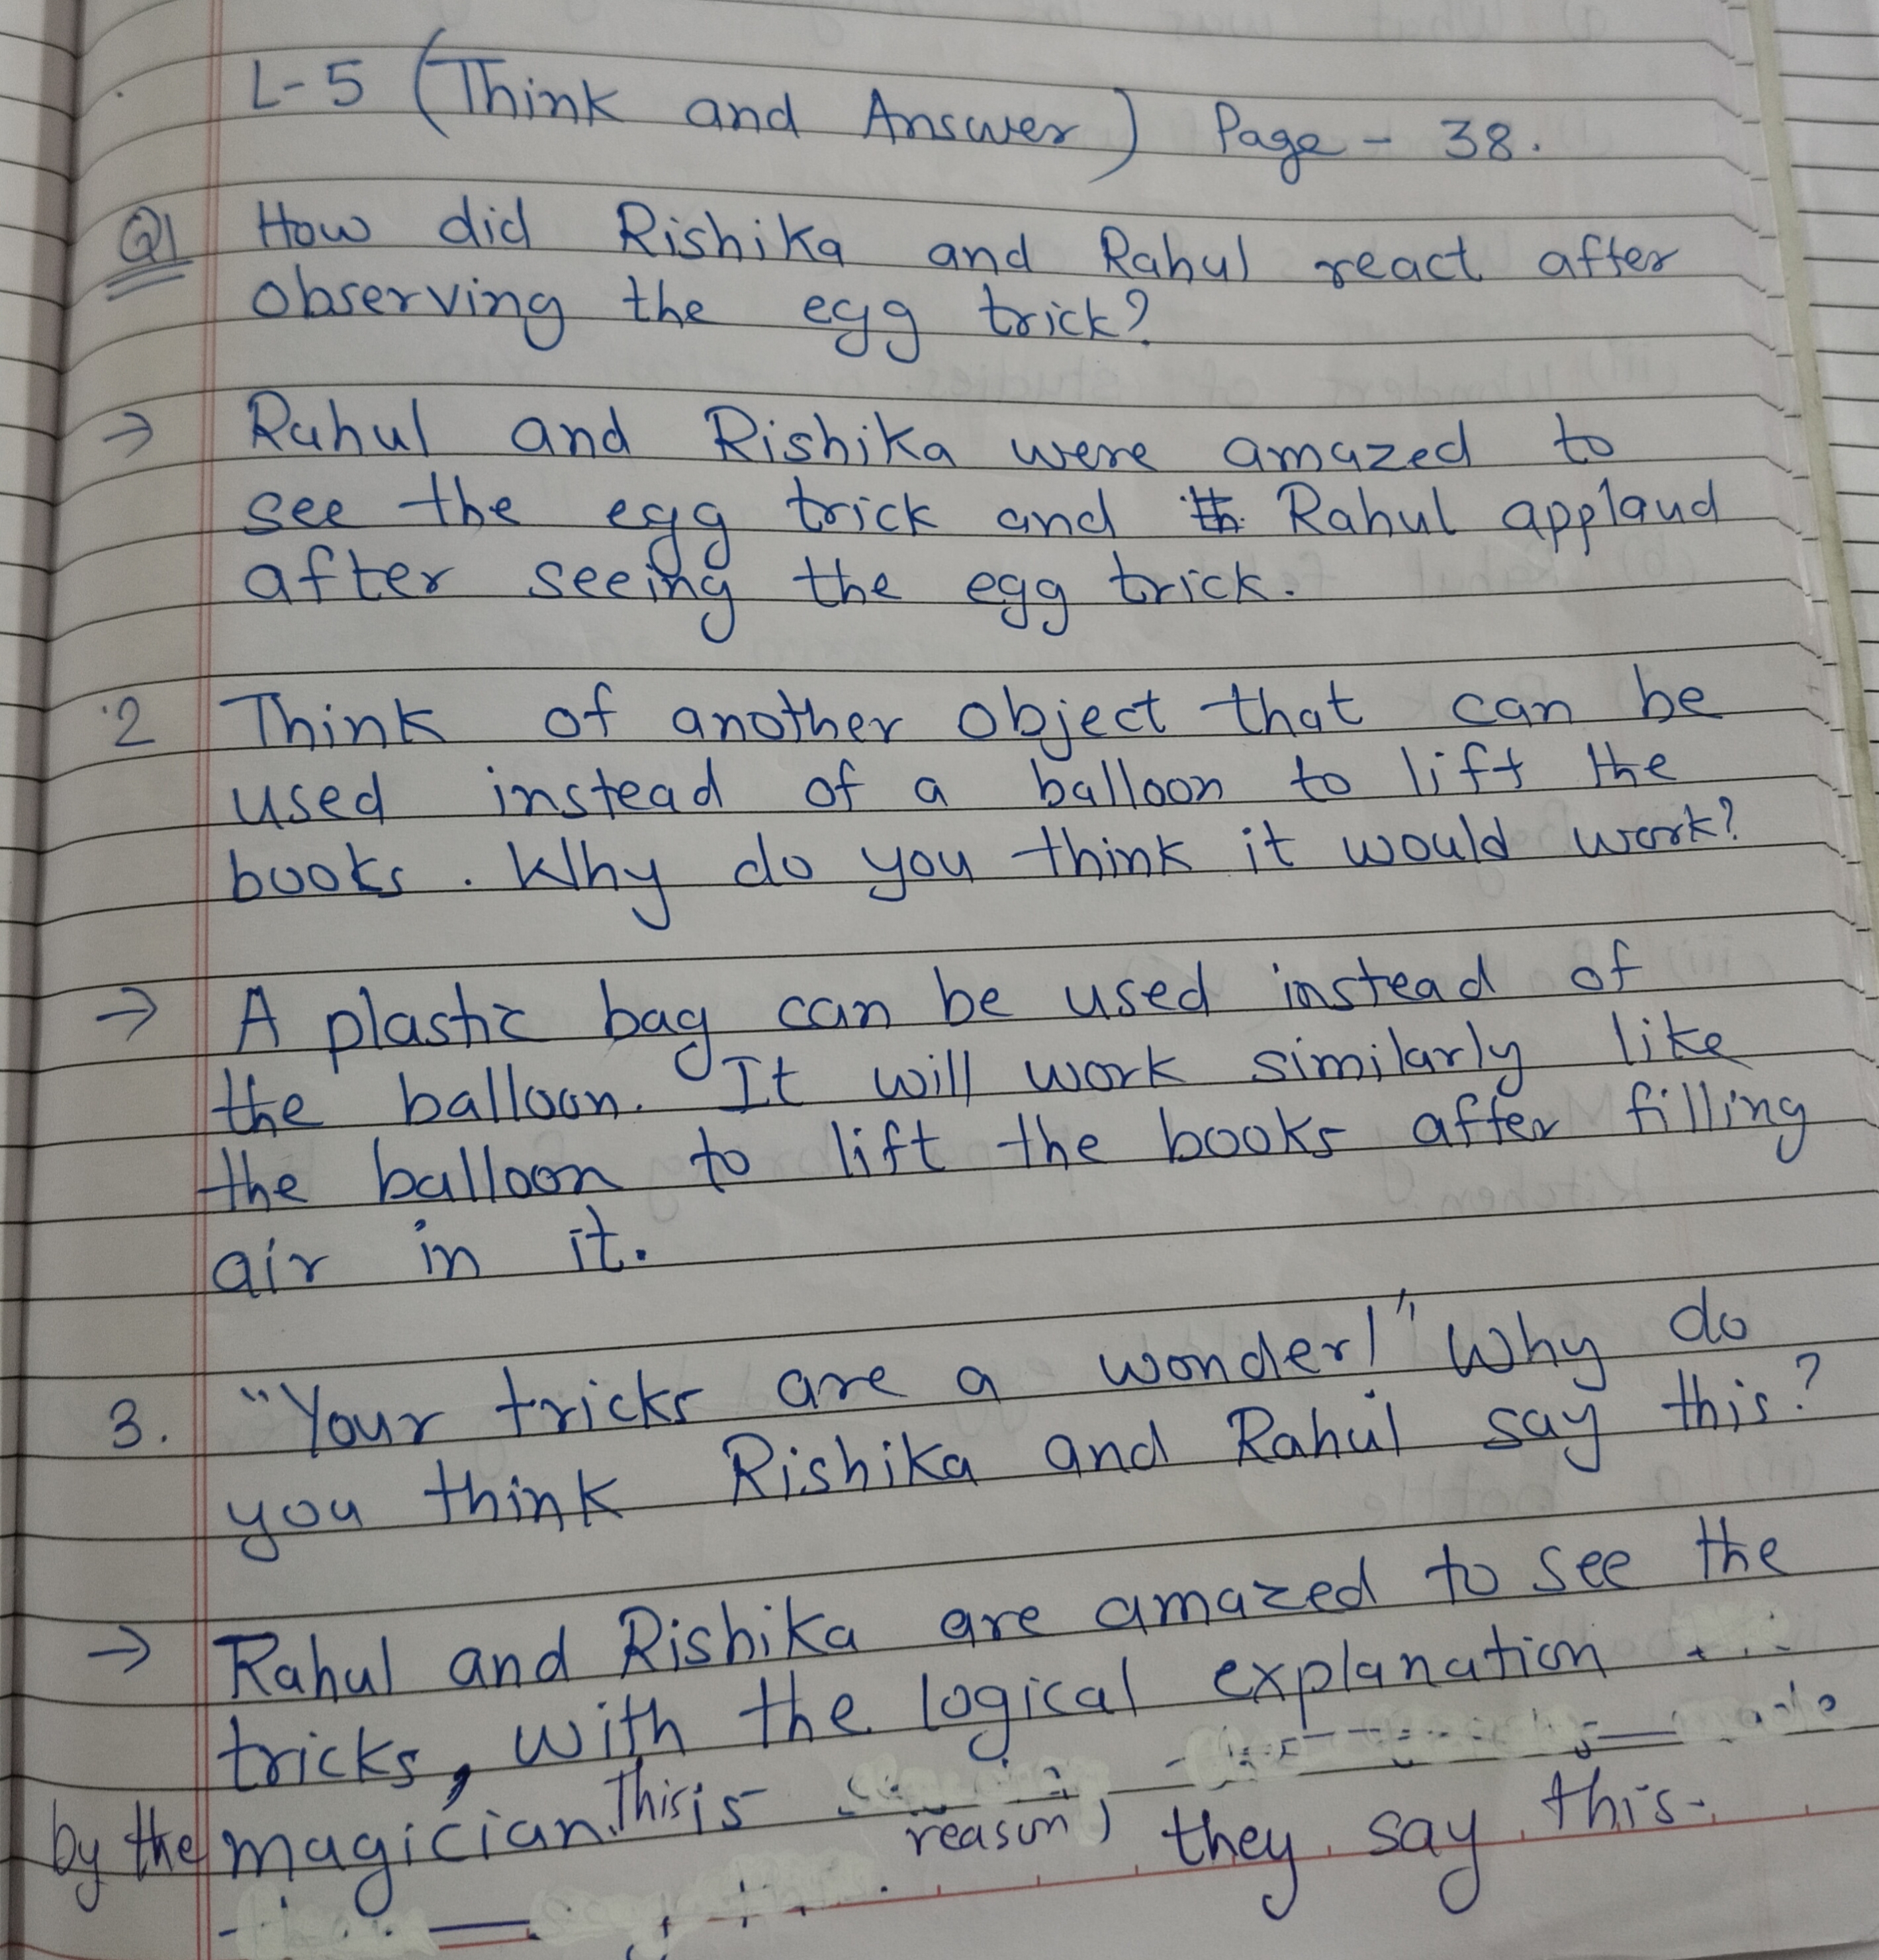 L-5 (Think and Answer) Page - 38.
Q1 How did Rishika and Rahul react after
observing the egg trick?
→ Rahul and Rishika were amazed to
see the egg trick and Rahul applaud
after seeing the egg trick.
2 Think of another object that can be
used instead of a balloon to lift the
books. Why do you think it would work?
→ A plastic bag can be used instead of
the balloon. It will work similarly like
the balloon to lift the books after filling
air in it.
3. "Your tricks are a wonder!" Why do
you think Rishika and Rahul say this?
→ Rahul and Rishika are amazed to see the
tricks, with the logical explanation
by the magician. This is reason, they say this.